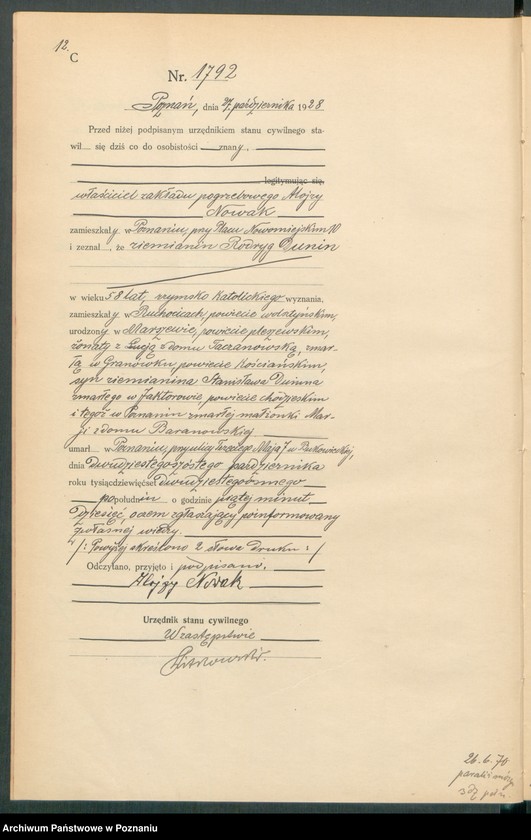 12.
C
Nr. 1792
Poznań, dnia 27. października 1928
Przed niżej podpisanym urzędnikiem stanu cywilnego sta-
wił się dziś co do osobistości znany,
legitymując się
właściciel zakładu pogrzebowego Alojzy
Nowak
zamieszkały w Poznaniu, przy Placu Nowomiejskim 10
i zeznał, że ziemianin Rodryg Dunin
w wieku 58 lat, rzymsko katolickiego wyznania,
zamieszkały w Ruchocicach, powiecie wolsztyńskim,
urodzony w Marszewie, powiecie pleszewskim,
żonaty z Łucją z domu Taczanowską, zmar-
łą w Granówku, powiecie Kościańskim,
syn ziemianina Stanisława Dunina
zmarłego w Jaktorowie, powiecie chodzieskim
i tegoż w Poznaniu zmarłej małżonki Mar-
ji z domu Baranowskiej
umarł w Poznaniu, przy ulicy Trzeciego Maja 7 u
dnia dwudziestego szóstego października
roku tysiącdziewięćset dwudziestegoósmego
po południu o godzinie piątej minut
dziesięć, o czem zgłaszający poinformowany
z własnej wiedzy.
/: Powyżej skreślono 2 słowa druku :/
Odczytano, przyjęto i podpisano.
Alojzy Nowak
Urzędnik stanu cywilnego
W zastępstwie
26. 6. 70
Archiwum Państwowe w Poznaniu